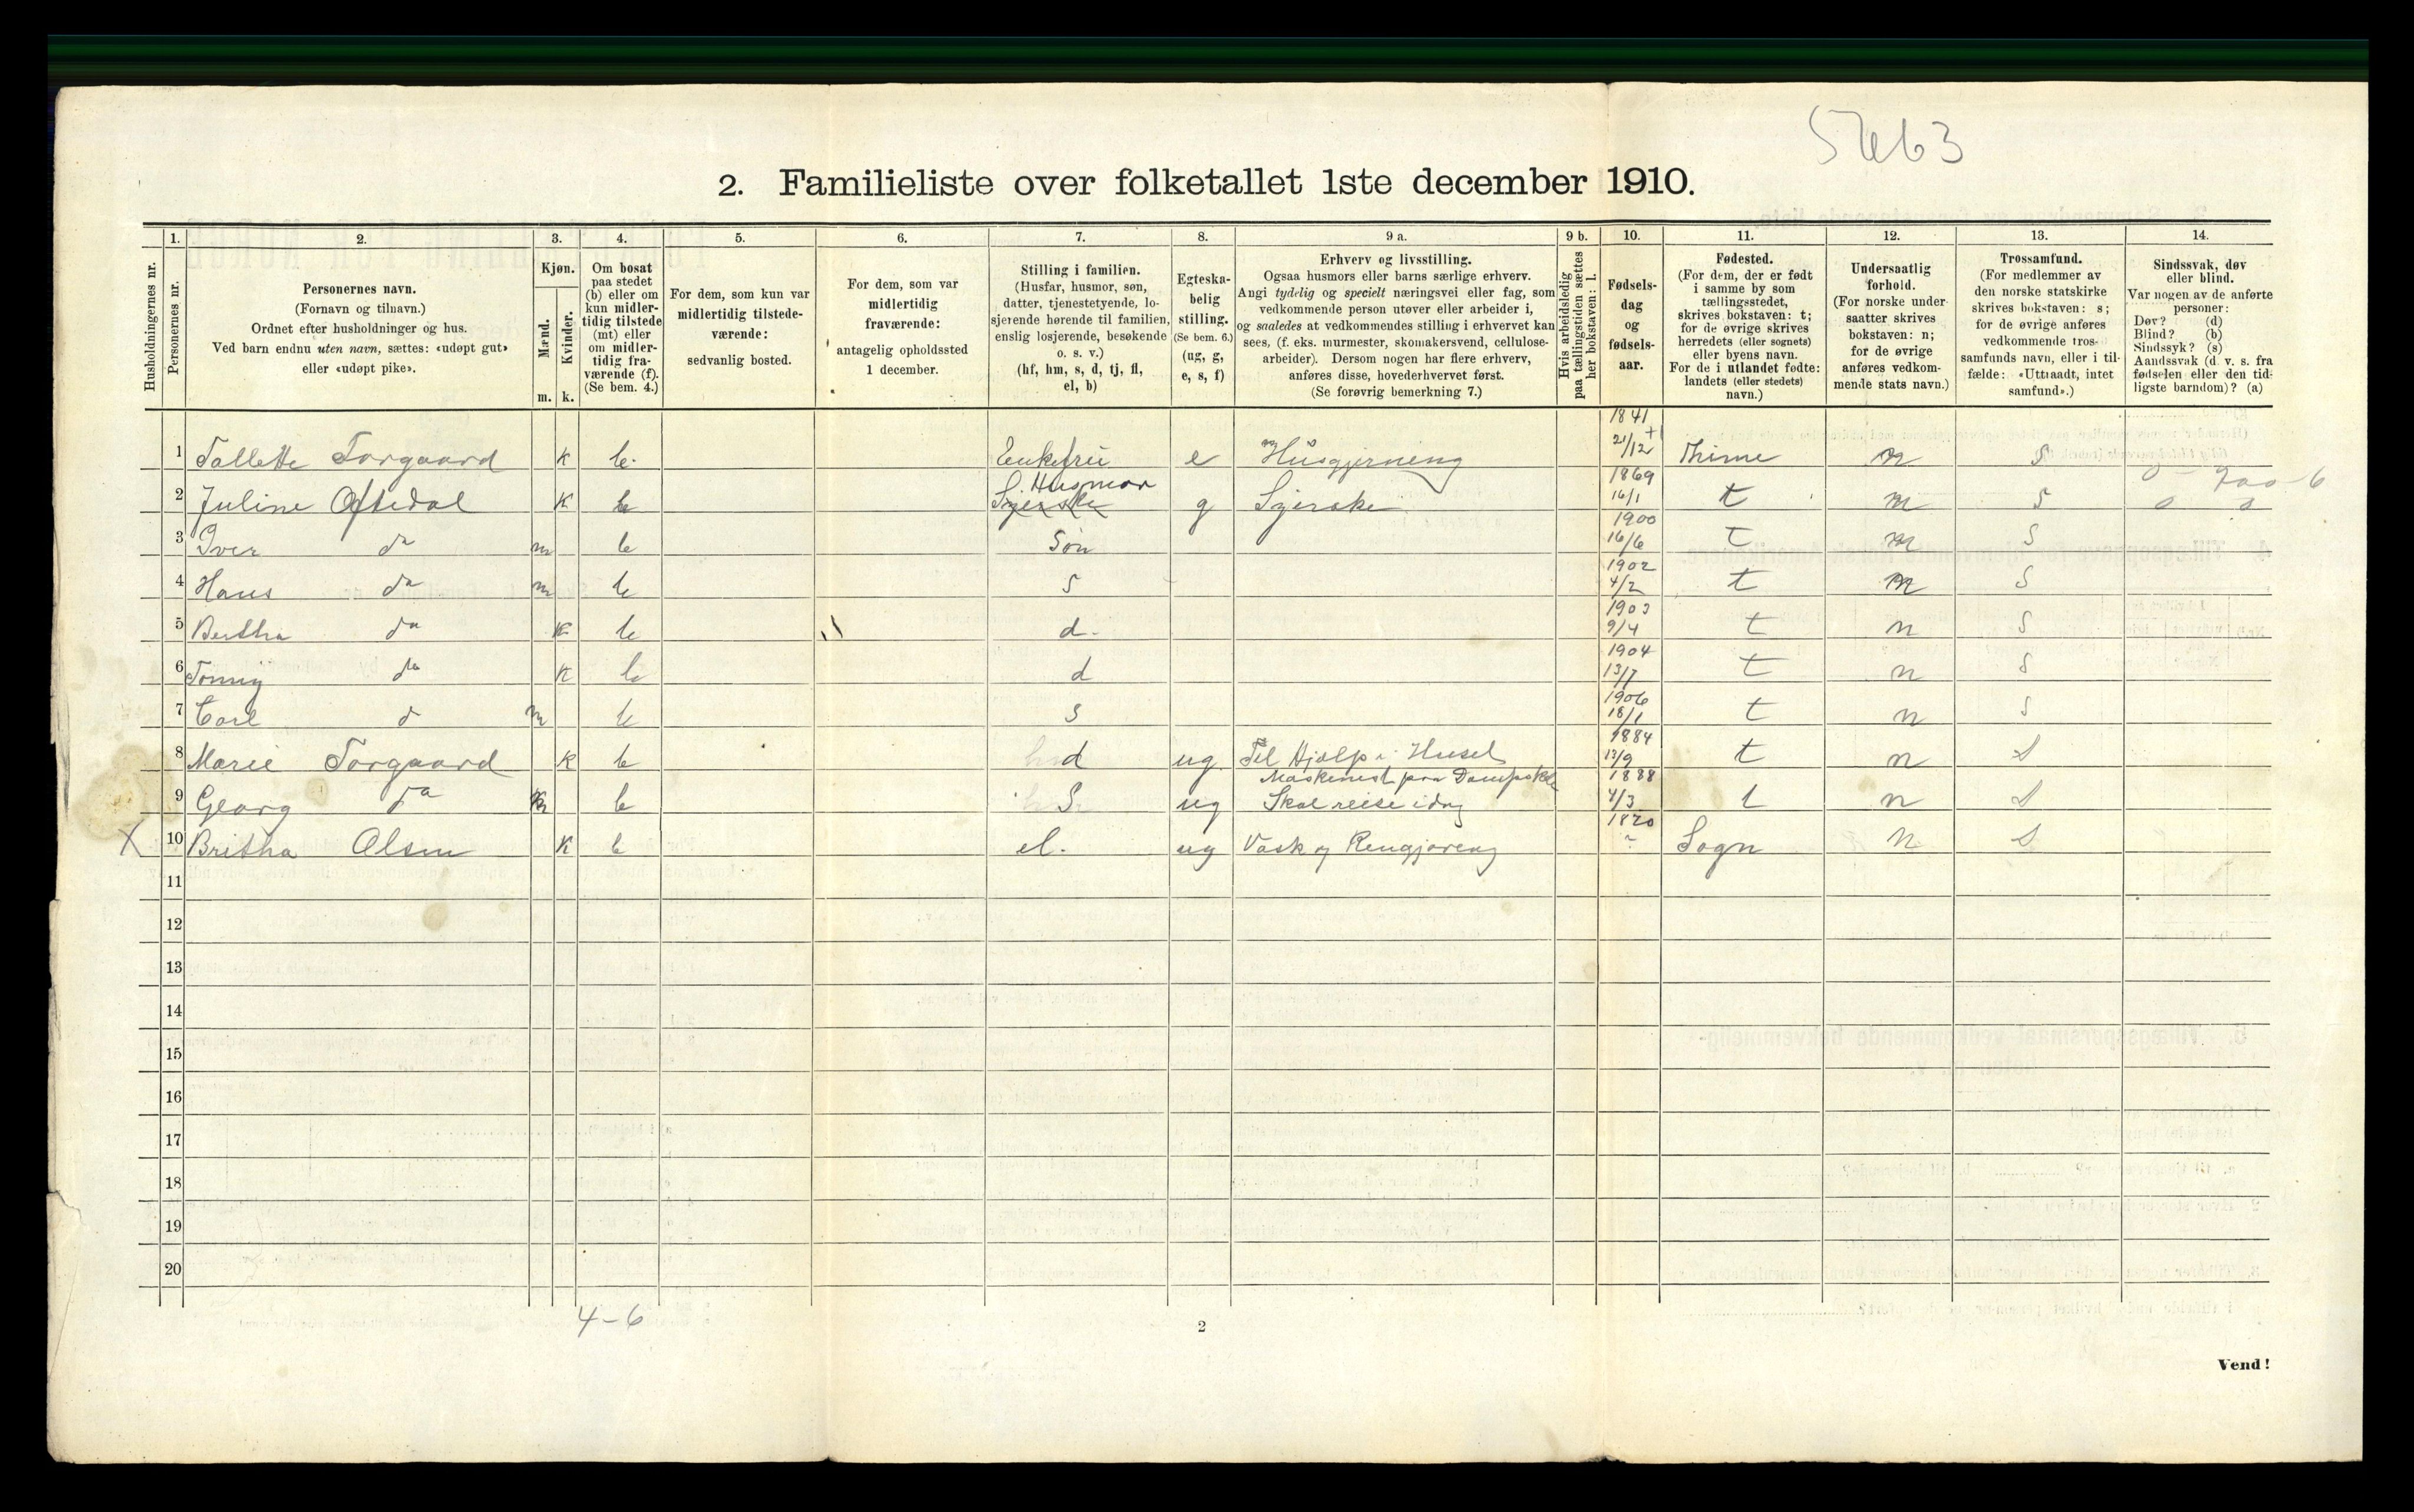 2. Familieliste over folketallet 1ste december 1910.
Husholdningernes nr.
1. Personernes nr.
2. Personernes navn.
(Fornavn og tilnavn.)
Ordnet efter husholdninger og hus.
Ved barn endnu uten navn, sættes: «udøpt gut»
eller «udøpt pike».
3. Kjøn.
Mænd. m.
Kvinder. k.
4. Om bosat
paa stedet
(b) eller om
kun midler-
tidig tilstede
(mt) eller
om midler-
tidig fra-
værende (f).
(Se bem. 4.)
5. For dem, som kun var
midlertidig tilstede-
værende:
sedvanlig bosted.
6. For dem, som var
midlertidig
fraværende:
antagelig opholdssted
1 december.
7. Stilling i familien.
(Husfar, husmor, søn,
datter, tjenestetyende, lo-
sjerende hørende til familien,
enslig losjerende, besøkende
o. s. v.)
(hf, hm, s, d, tj, fl,
el, b)
8. Egteska-
belig
stilling.
(Se bem. 6.)
(ug, g,
e, s, f)
9 a. Erhverv og livsstilling.
Ogsaa husmors eller barns særlige erhverv.
Angi tydelig og specielt næringsvei eller fag, som
vedkommende person utøver eller arbeider i,
og saaledes at vedkommendes stilling i erhvervet kan
sees, (f. eks. murmester, skomakersvend, cellulose-
arbeider). Dersom nogen har flere erhverv,
anføres disse, hovederhvervet først.
(Se forøvrig bemerkning 7.)
9 b. Hvis arbeidsledig
paa tællingstiden sættes
her bokstaven: l.
10. Fødsels-
dag
og
fødsels-
aar.
11. Fødested.
(For dem, der er født
i samme by som
tællingsstedet,
skrives bokstaven: t;
for de øvrige skrives
herredets (eller sognets)
eller byens navn.
For de i utlandet fødte:
landets (eller stedets)
navn.)
12. Undersaatlig
forhold.
(For norske under-
saatter skrives
bokstaven: n;
for de øvrige
anføres vedkom-
mende stats navn.)
13. Trossamfund.
(For medlemmer av
den norske statskirke
skrives bokstaven: s;
for de øvrige anføres
vedkommende tros-
samfunds navn, eller i til-
fælde: «Uttraadt, intet
samfund».)
14. Sindssvak, døv
eller blind.
Var nogen av de anførte
personer:
Døv? (d)
Blind? (b)
Sindssyk? (s)
Aandssvak (d. v. s. fra
fødselen eller den tid-
ligste barndom)? (a)
1 Tallette Torgaard k b. Enkefru e Husgjerning 1841 21/12 Thime n s
2 Juline Oftedal k b Husmor Syerske g Syerske 1869 16/1 t n s
3 Iver do m b Søn 1900 16/6 t n s
4 Hans do m b s 1902 4/2 t n s
5 Bertha do k b d. 1903 9/4 t n s
6 Tonny do k b d 1904 13/7 t n s
7 Carl d m b s 1906 18/1 t n s
8 Marie Torgaard k b d ug Til Hjælp i Huset 1884 13/9 t n s
9 Georg da m b S ug Maskinist paa Dampskib Skal reise idag 1888 4/3 t n s
X 10 Britha Olsen k b el. ug Vask og Rengjøring 1820 Sogn n s
11
12
13
14
15
16
17
18
19
20
4-6
2
Vend!